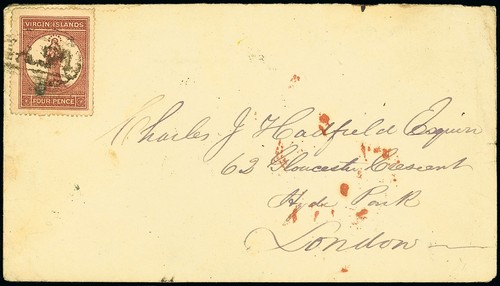 VIRGIN ISLANDS
FOUR PENCE
Charles J Hadfield Esquire
62 Gloucester Crescent
Hyde Park
London